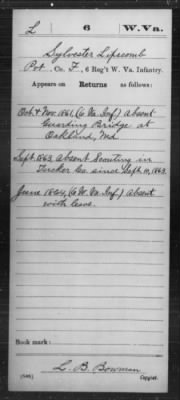 L | 6 | W. Va.
Sylvester Lipscomb
Pvt., Co. F, 6 Reg't W. Va. Infantry.
Appears on Returns as follows:
Oct. & Nov. 1861, (6 Va. Inf.) Absent
Guarding Bridge at
Oakland, Md
Sept. 1863 Absent Scouting in
Tucker Co. since Sept. 11, 1863.
June 1864, (6 W. Va. Inf.) Absent
with leave.
Book mark:
L. B. Bowman
(546) Copyist.